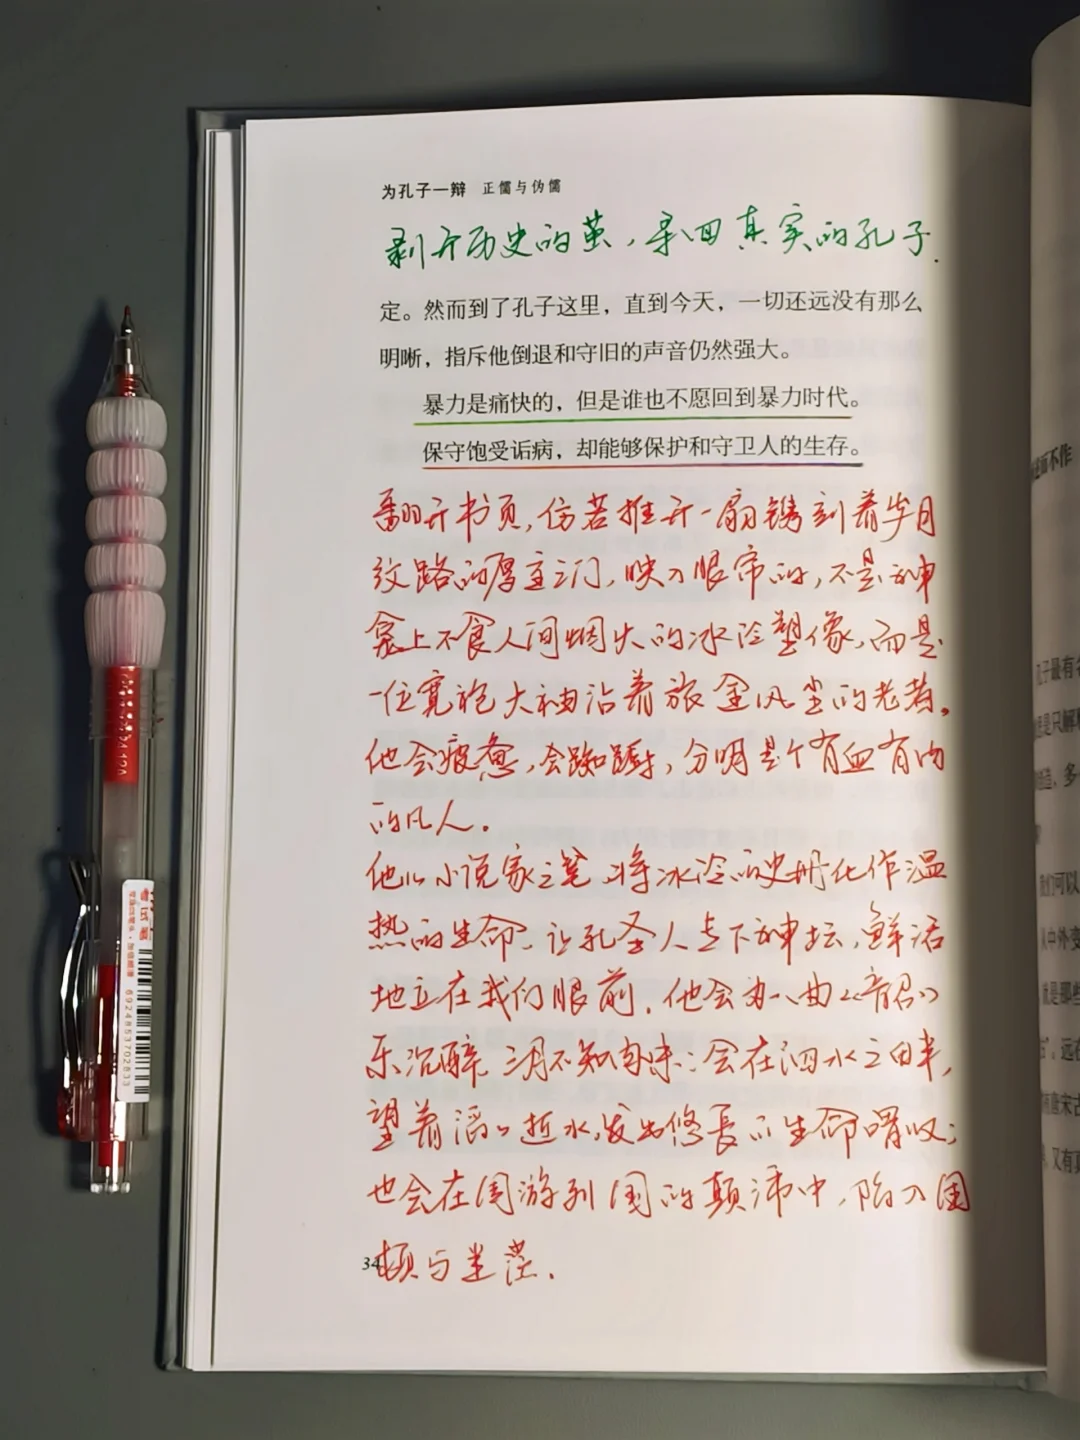 为孔子一辩 正儒与伪儒
剥开历史的茧,寻回真实的孔子.
定。然而到了孔子这里,直到今天,一切还远没有那么
明晰,指斥他倒退和守旧的声音仍然强大。
暴力是痛快的,但是谁也不愿回到暴力时代。
保守饱受诟病,却能够保护和守卫人的生存。
翻开书页,仿若推开一扇镌刻着岁月
纹路的厚重之门,映入眼帘的,不是神
龛上不食人间烟火的冰冷塑像,而是
一位宽袍大袖沾着旅尘风尘的老者。
他会疲惫,会踟蹰,分明是个有血有肉
的凡人.
他以小说家之笔,将冰冷的史册化作温
热的生命,让孔圣人走下神坛,鲜活
地立在我们眼前.他会为一曲《韶》
乐沉醉,三月不知肉味;会在泗水之畔,
望着滔滔逝水,发出悠长的生命喟叹;
也会在周游列国的颠沛中,陷入困
顿与迷茫.
34
而不作
孔子最有名
思是只解
造,多
我们可以
从中外变
就是那些
远在
唐宋古
,又有真
考试笔
6924853702833